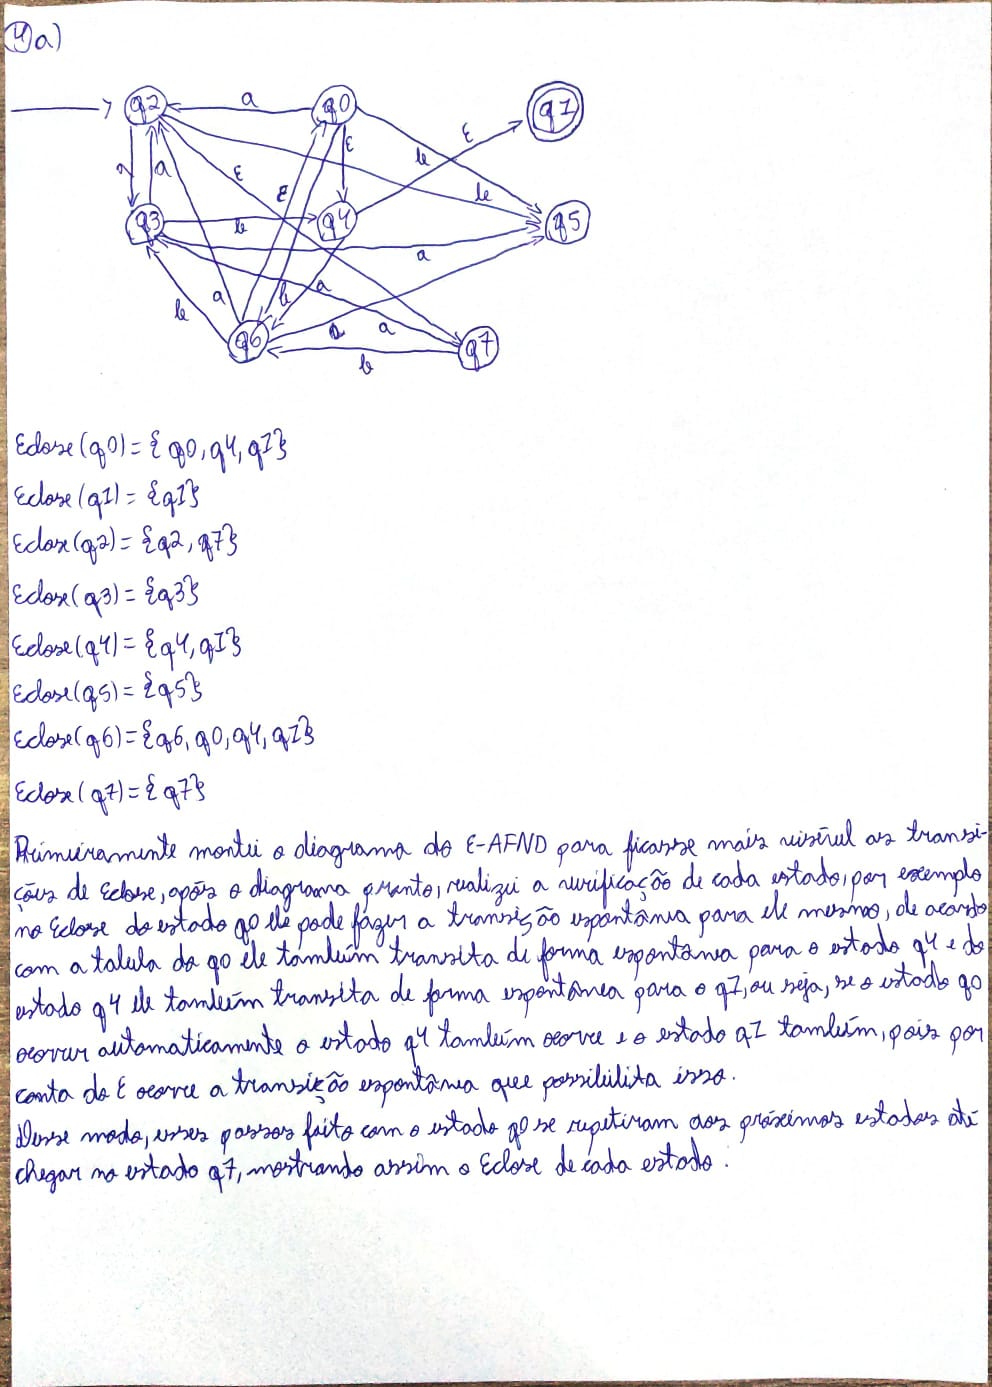 4)a)
q2 a q0 q1
ε ε b
a a ε ε b
q3 b q4 q5
a
b a b a a a
q6 b q7
Eclose(q0) = {q0, q4, q1}
Eclose(q1) = {q1}
Eclose(q2) = {q2, q7}
Eclose(q3) = {q3}
Eclose(q4) = {q4, q1}
Eclose(q5) = {q5}
Eclose(q6) = {q6, q0, q4, q1}
Eclose(q7) = {q7}
Primeiramente montei o diagrama do E-AFND para ficasse mais visível as transi-
ções de Eclose, após o diagrama pronto, realizei a verificação de cada estado, por exemplo
no Eclose do estado q0 ele pode fazer a transição espontânia para ele mesmo, de acordo
com a tabela do q0 ele também transita de forma espontânea para o estado q4 e do
estado q4 ele também transita de forma espontânea para o q1, ou seja, se o estado q0
ocorrer automaticamente o estado q4 também ocorre e o estado q1 também, pois por
conta do E ocorre a transição espontânea que possibilita isso.
Desse modo, esses passos feito com o estado q0 se repetiram aos próximos estados até
chegar no estado q7, mostrando assim o Eclose de cada estado.